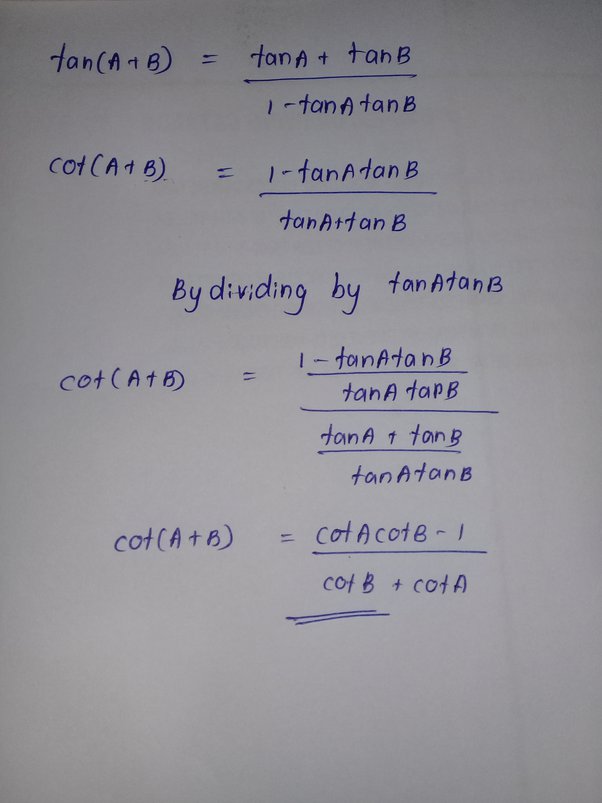 tan(A+B) = tanA + tanB
1-tanAtanB
cot(A+B) = 1-tanAtanB
tanA+tanB
By dividing by tanAtanB
cot(A+B) = 1-tanAtanB
tanAtanB
tanA + tanB
tanAtanB
cot(A+B) = cotAcotB-1
cotB + cotA